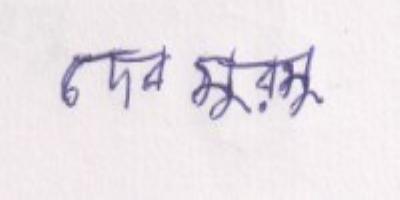 দেব মুরমু